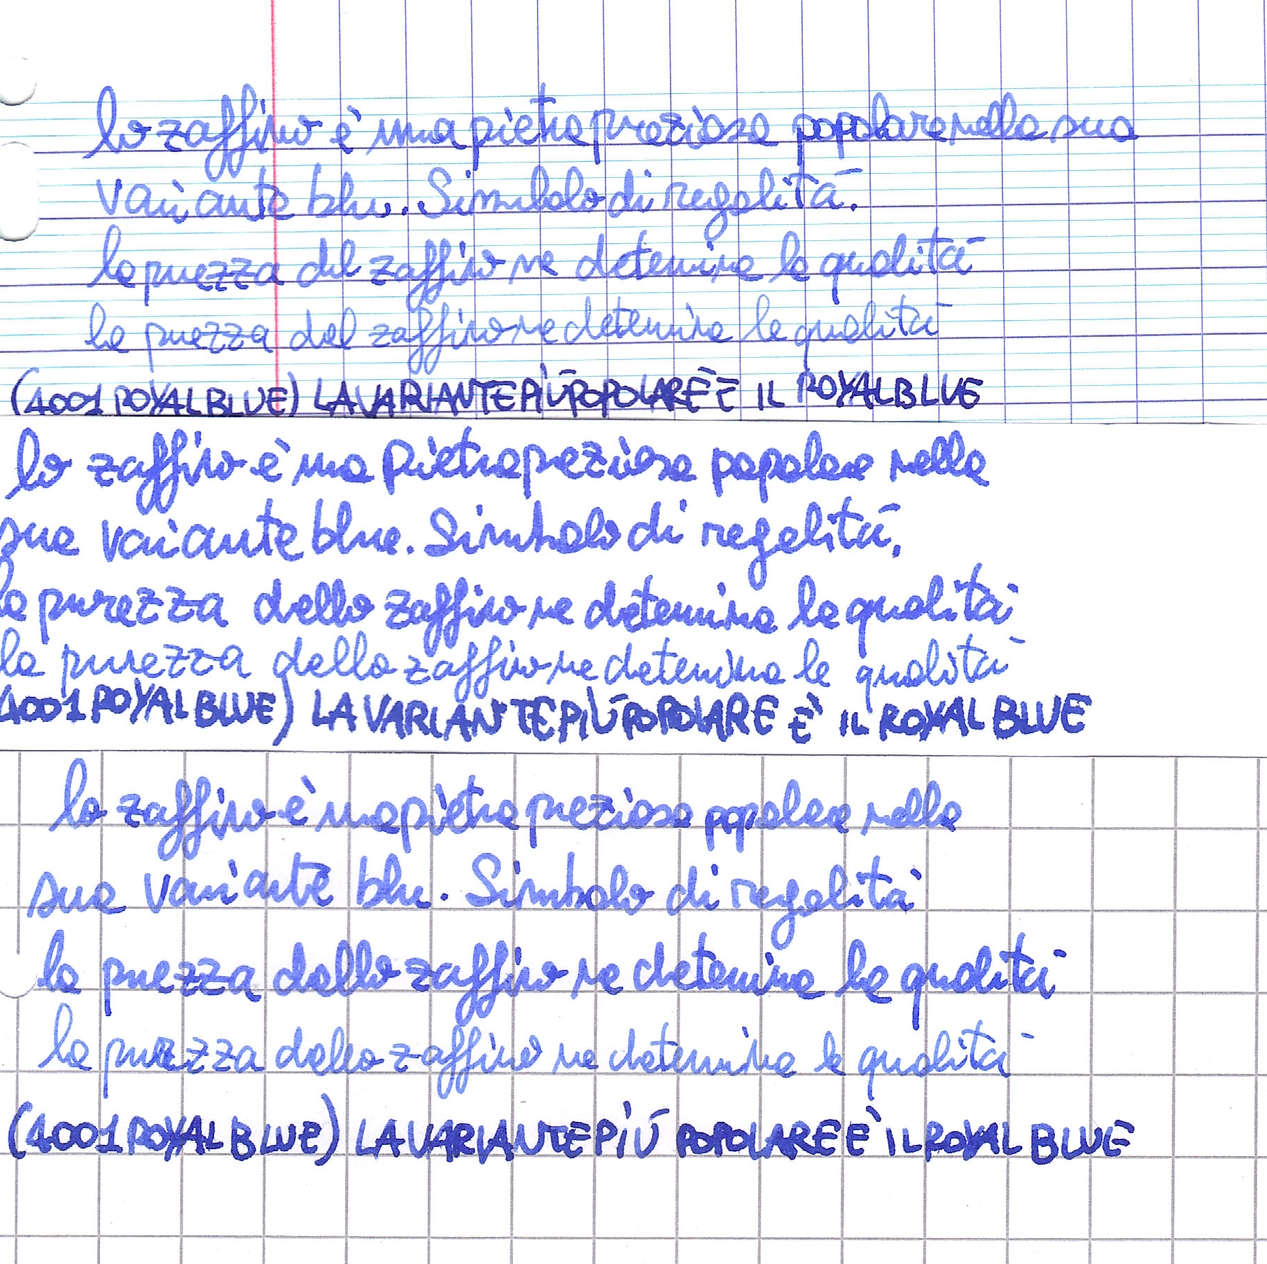 lo zaffiro è una pietra preziosa popolare nella sua
variante blu. Simbolo di regalità.
la purezza del zaffiro ne determina la qualità
la purezza del zaffiro ne determina la qualità
(4001 ROYAL BLUE) LA VARIANTE PIÙ POPOLARE È IL ROYAL BLUE
lo zaffiro è una pietra preziosa popolare nella
sua variante blue. Simbolo di regalità.
la purezza dello zaffiro ne determina la qualità
la purezza dello zaffiro ne determina la qualità
(4001 ROYAL BLUE) LA VARIANTE PIÙ POPOLARE È IL ROYAL BLUE
lo zaffiro è una pietra preziosa popolare nella
sua variante blu. Simbolo di regalità
la purezza dello zaffiro ne determina la qualità
la purezza dello zaffiro ne determina la qualità
(4001 ROYAL BLUE) LA VARIANTE PIÙ POPOLARE È IL ROYAL BLUE